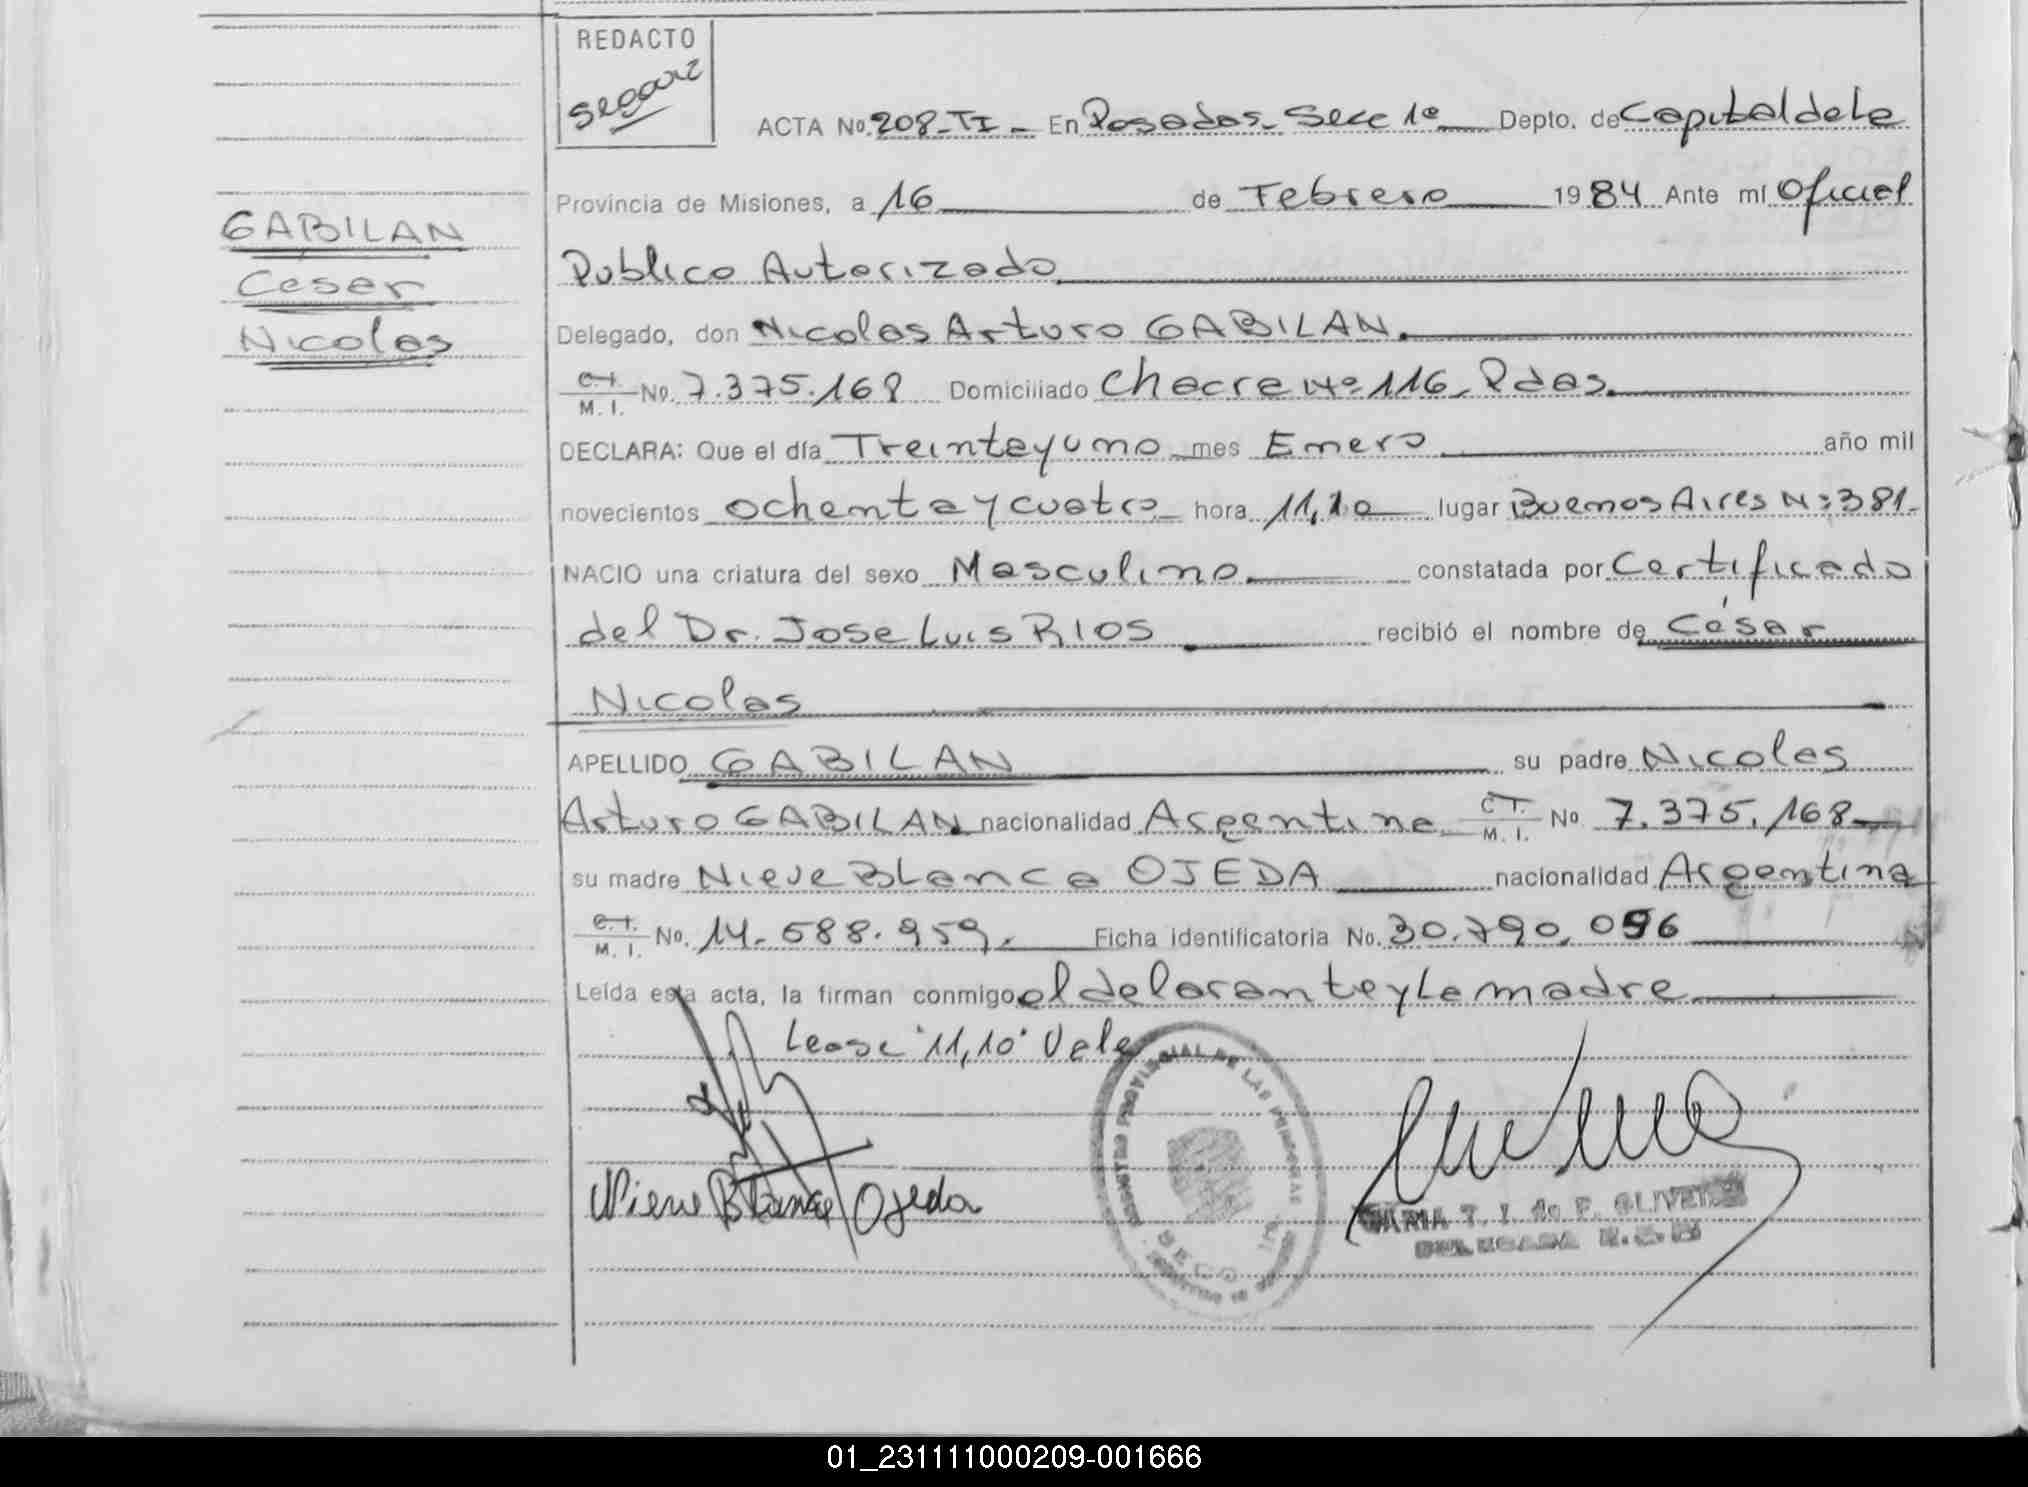 REDACTO
ACTA No. 208-TI - En Posadas - Secc 1ª Depto. de Capital de la
Provincia de Misiones, a 16 de Febrero 1984 Ante mí Oficial
Publico Autorizado
GABILAN
César
Nicolas
Delegado, don Nicolas Arturo GABILAN.
C.I.
M. I. No. 7.375.168 Domiciliado Chacra Nº 116 - Pdas.
DECLARA: Que el día Treinta y uno mes Enero año mil
novecientos ochenta y cuatro hora 11,10 lugar Buenos Aires Nº 381.
NACIO una criatura del sexo Masculino constatada por Certificado
del Dr. Jose Luis RIOS recibió el nombre de César
Nicolas
APELLIDO GABILAN su padre Nicolas
Arturo GABILAN nacionalidad Argentina C.I.
M. I. No. 7.375.168
su madre Nieve Blanca OJEDA nacionalidad Argentina
C.I.
M. I. No. 14.588.959. Ficha identificatoria No. 30.790.096
Leída esta acta, la firman conmigo el delarante y la madre
Lease "11,10" Vale
Nieve Blanca Ojeda
PROVINCIAL DE LAS PERSONAS
T. I. de F. OLIVEIRA
DELEGADA
01_231111000209-001666